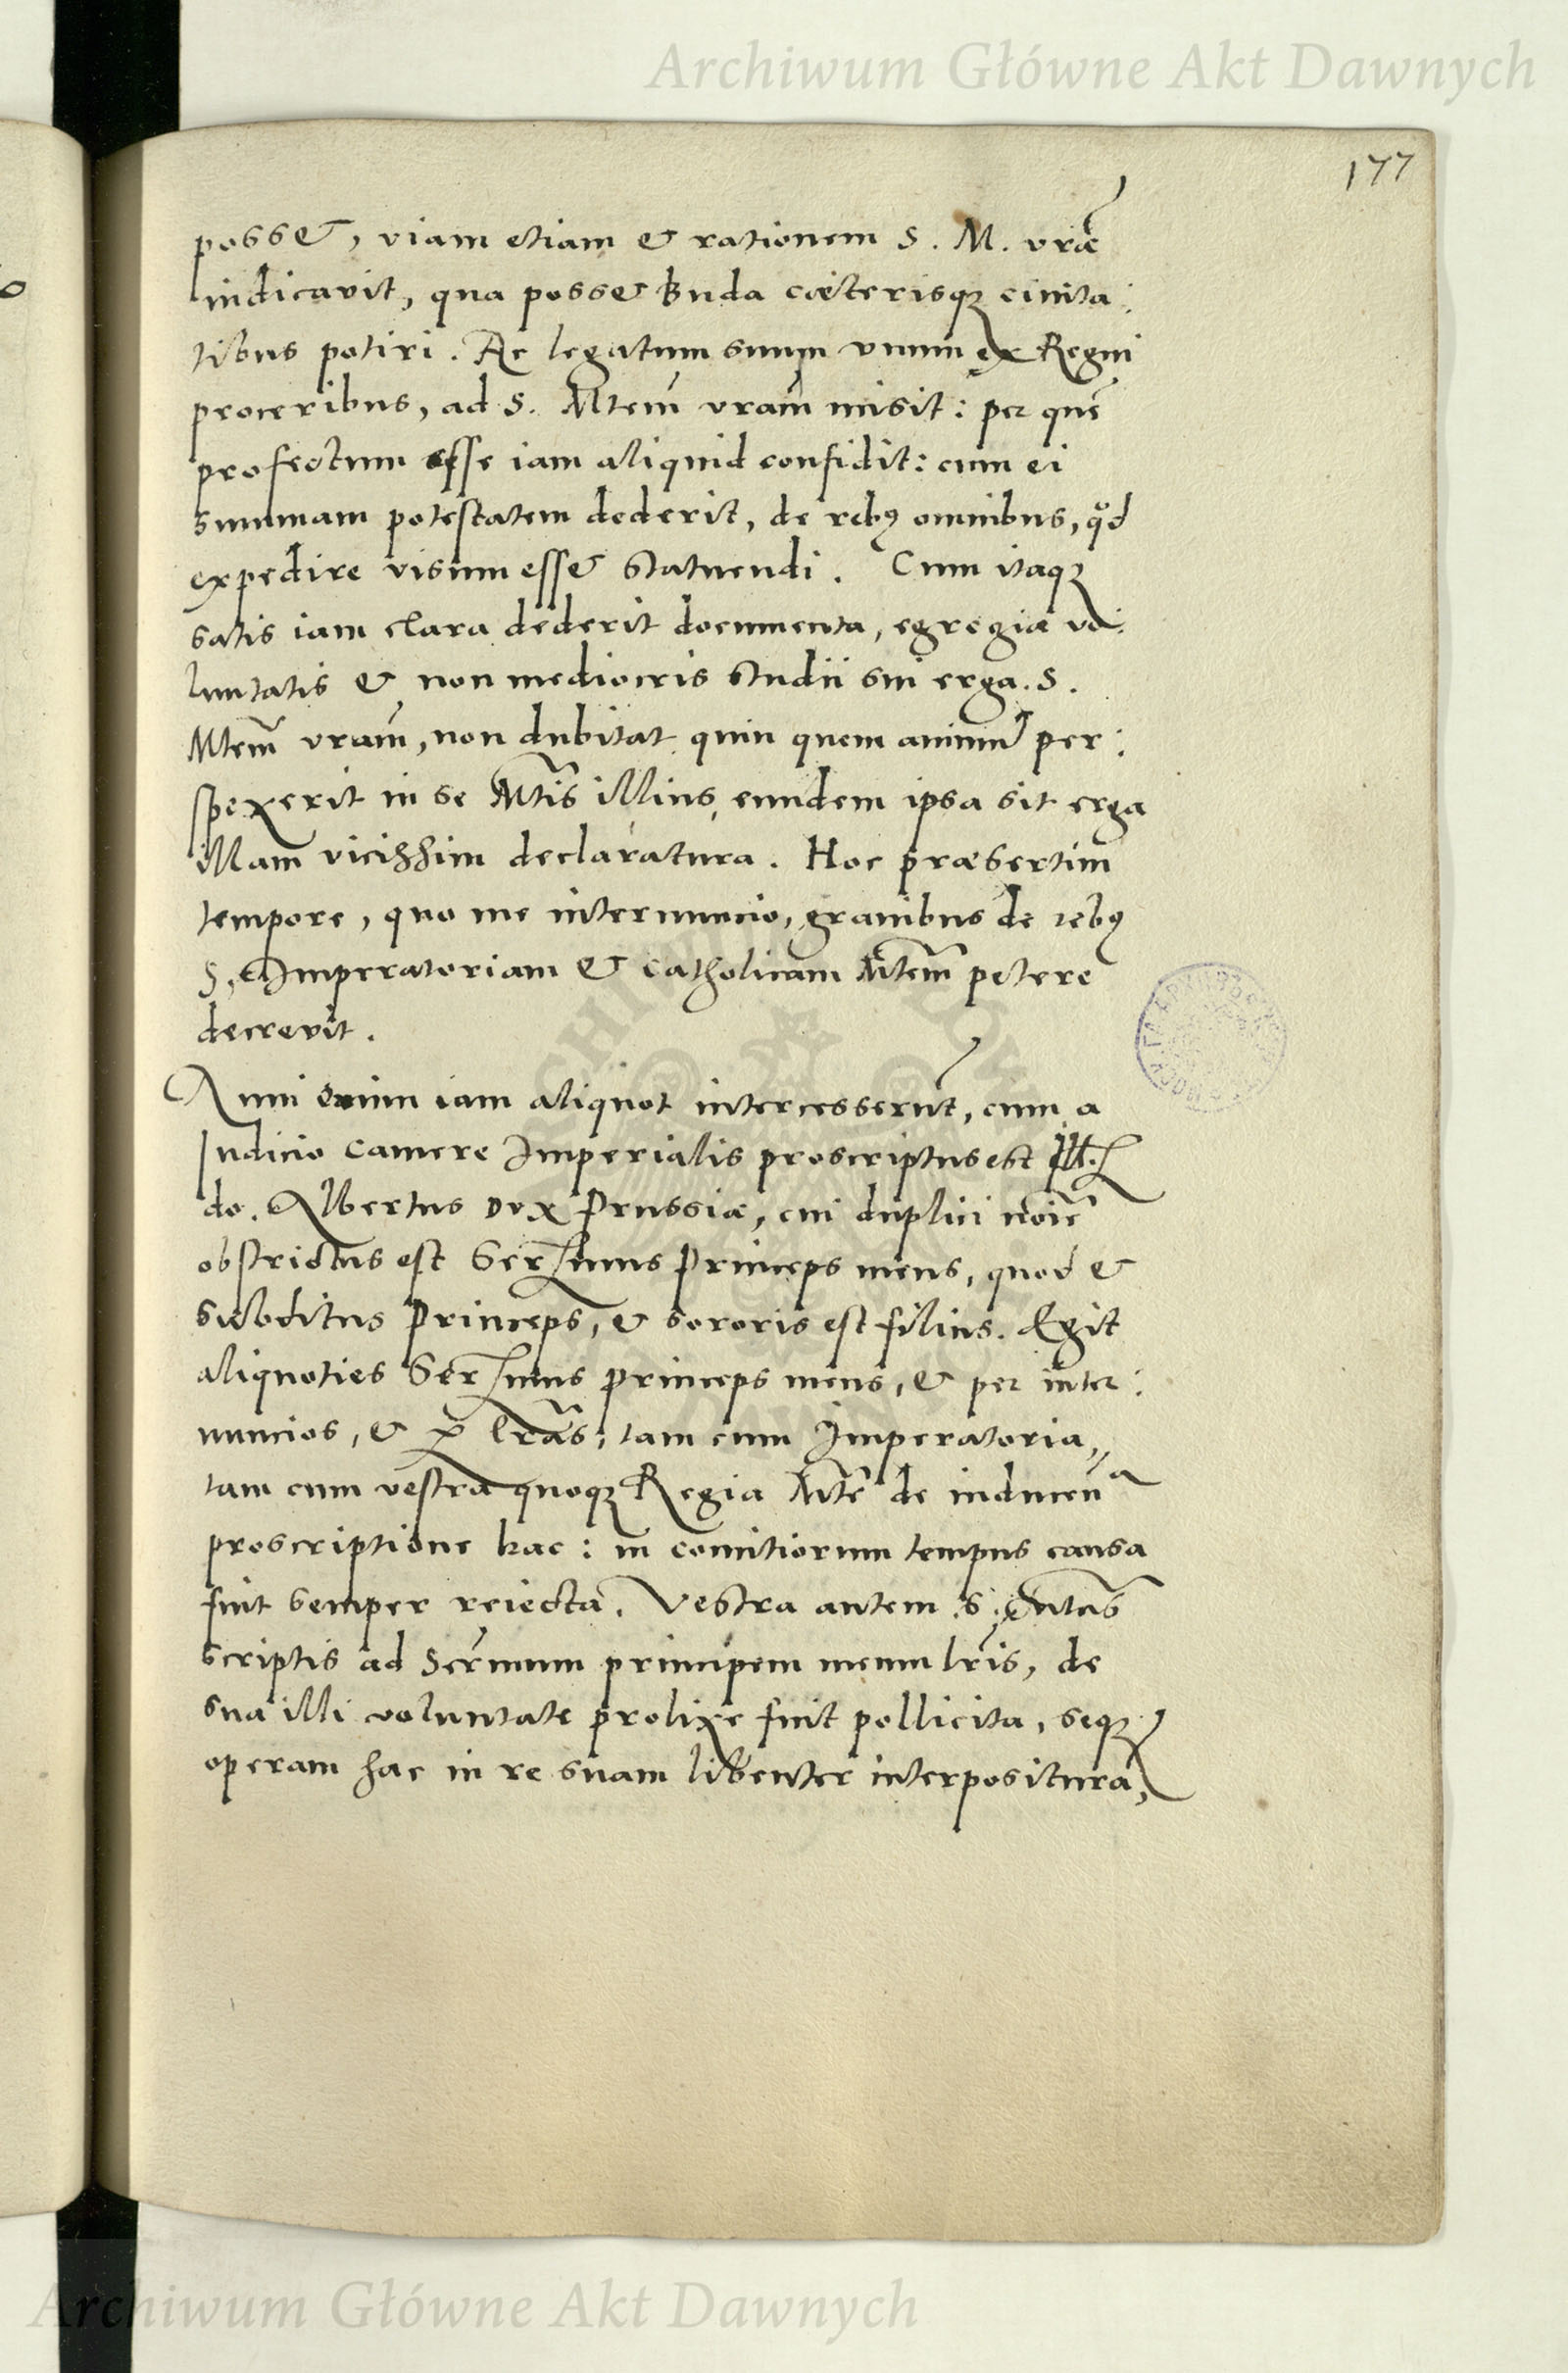 Archiwum Główne Akt Dawnych
177
posset, viam etiam & rationem S. M. vrae
indicavit, qua posset Buda caeterisq; ciuita:
tibus potiri. Ac legatum suum vnum ex Regni
proceribus, ad S. Mtem vram misit: per quē
profectum esse iam aliquid confidit: cum ei
summam potestatem dederit, de rebꝰ omnibus, qd
expedire visum esset statuendi. Cum itaq;
satis iam clara dederit documenta, egregiae vo:
luntatis & non mediocris studii sui erga. S.
Mtem vram, non dubitat quin quem animū per:
spexerit in se Mtis illius, eundem ipsa sit erga
illam vicissim declaratura. Hoc praesertim
tempore, quo me internuncio, grauibus de rebꝰ
S. Imperatoriam & Catholicam Mtem petere
decrevit.
Anni enim iam aliquot intercesserūt, cum a
Iudicio Camere Imperialis proscriptus est Ill.
do. Albertus Dux Prussiae, cui duplici noīe
obstrictus est Serᵐus Princeps meus, quod &
subditus Princeps, & sororis est filius. Egit
aliquoties Serᵐus princeps meus, & per inter:
nuncios, & ꝑ lras, tam cum Imperatoria,
tam cum vestra quoq; Regia Mte de inducenā
proscriptione hac: in comitiorum tempus causa
fuit semper reiecta. Vestra autem .S. Mtas
scriptis ad Sermum principem meum lris, de
sua illi voluntate prolixe fuit pollicita, seq;
operam hac in re suam libenter interpositura,
Archiwum Główne Akt Dawnych